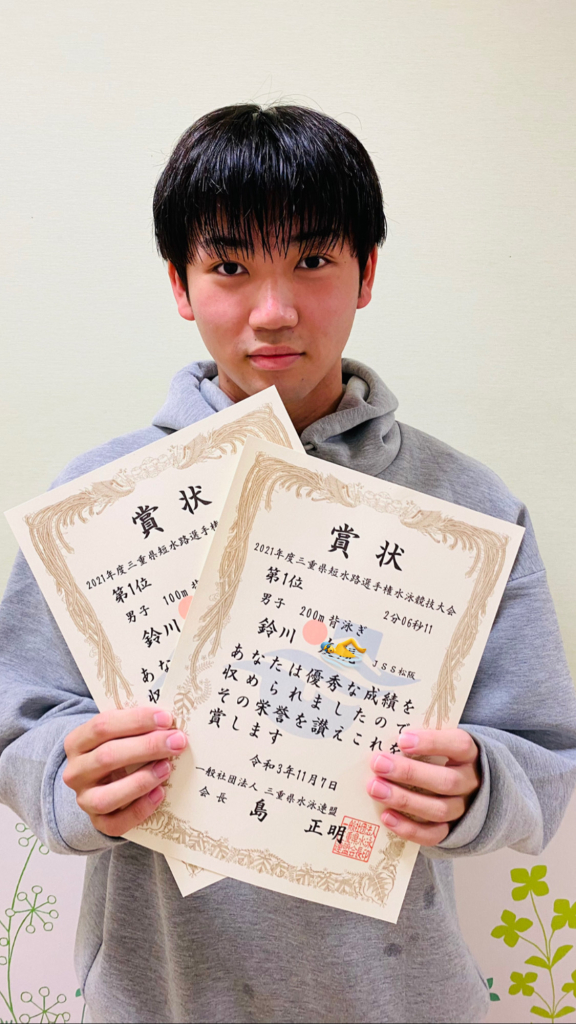 賞状
2021年度三重県短水路選手権
第1位
男子 100m 背
鈴川
あな
収め
賞状
2021年度三重県短水路選手権水泳競技大会
第1位
男子 200m 背泳ぎ 2分06秒11
鈴川
JSS松阪
あなたは優秀な成績を
収められましたので
その栄誉を讃えこれを
賞します
令和3年11月7日
一般社団法人 三重県水泳連盟
会長 島 正明